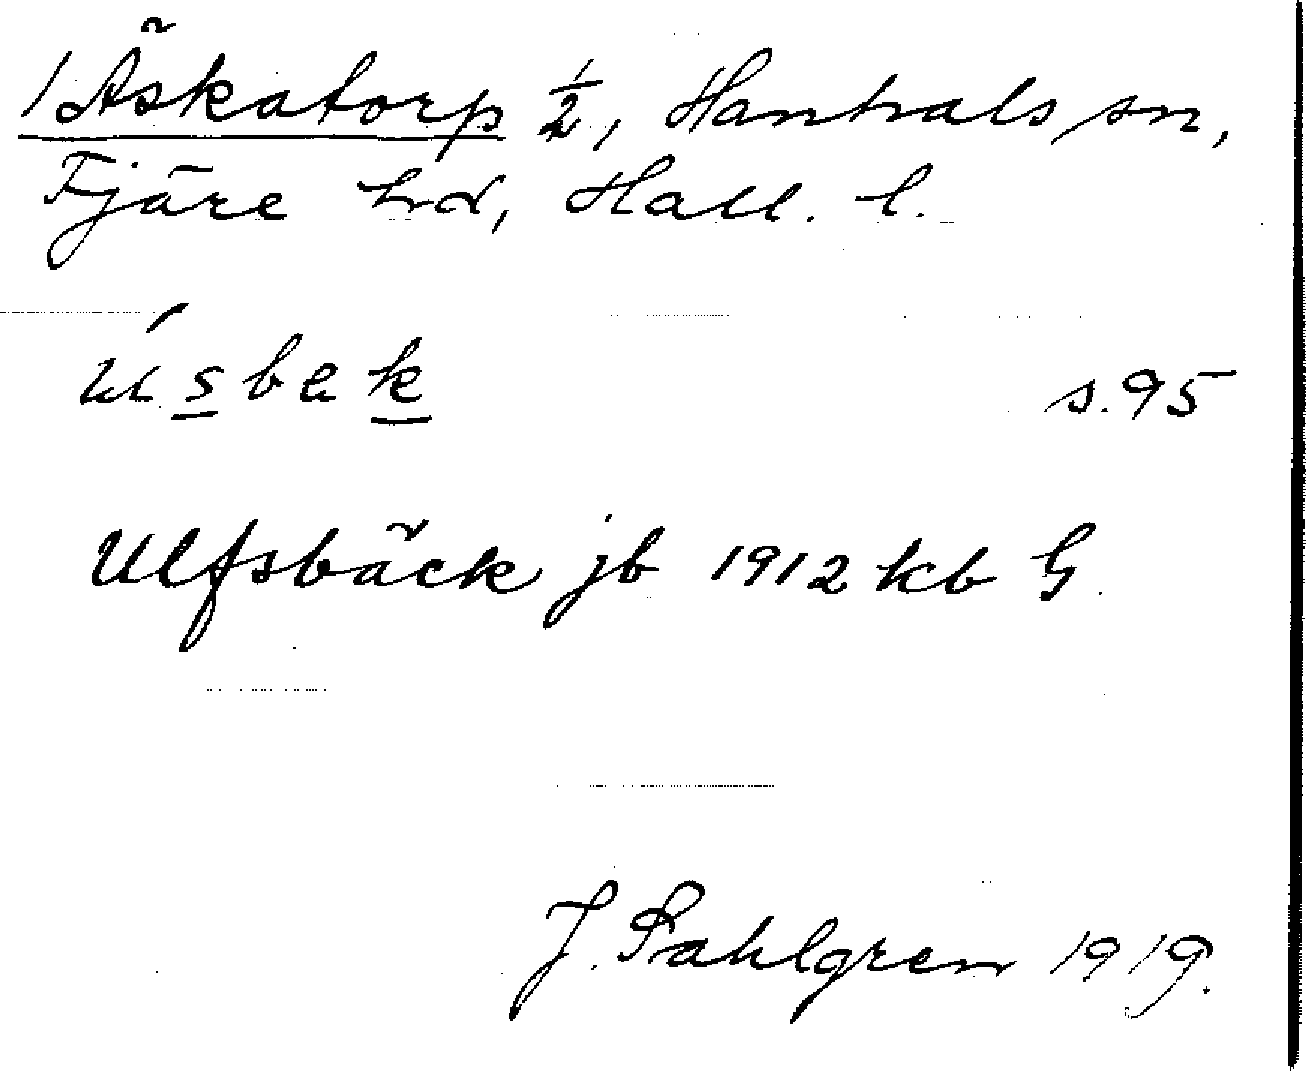 1 Äskatorp ½, Hanhals sn,
Fjäre hd, Hall. l.
úsbek s. 95
Ulfsbäck jb 1912 kb G.
J. Sahlgren 1919.